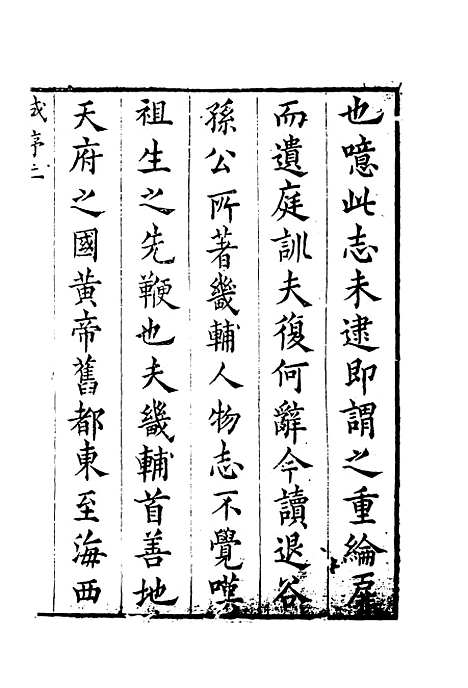 也噫此志未逮即謂之重綸
而遺庭訓夫復何辭今讀退谷
孫公所著畿輔人物志不覺嘆
祖生之先鞭也夫畿輔首善地
天府之國黃帝舊都東至海西
或序二